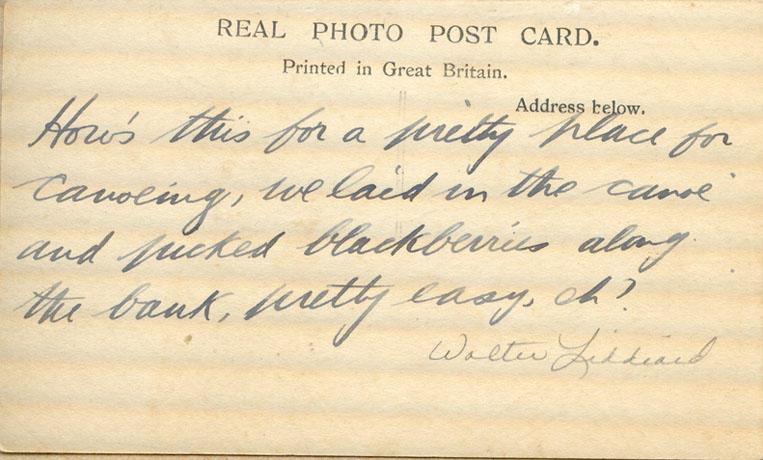 REAL PHOTO POST CARD.
Printed in Great Britain.
Address below.
How's this for a pretty place for
canoeing, we laid in the canoe
and picked blackberries along
the bank, pretty easy, eh?
Walter Liddiard